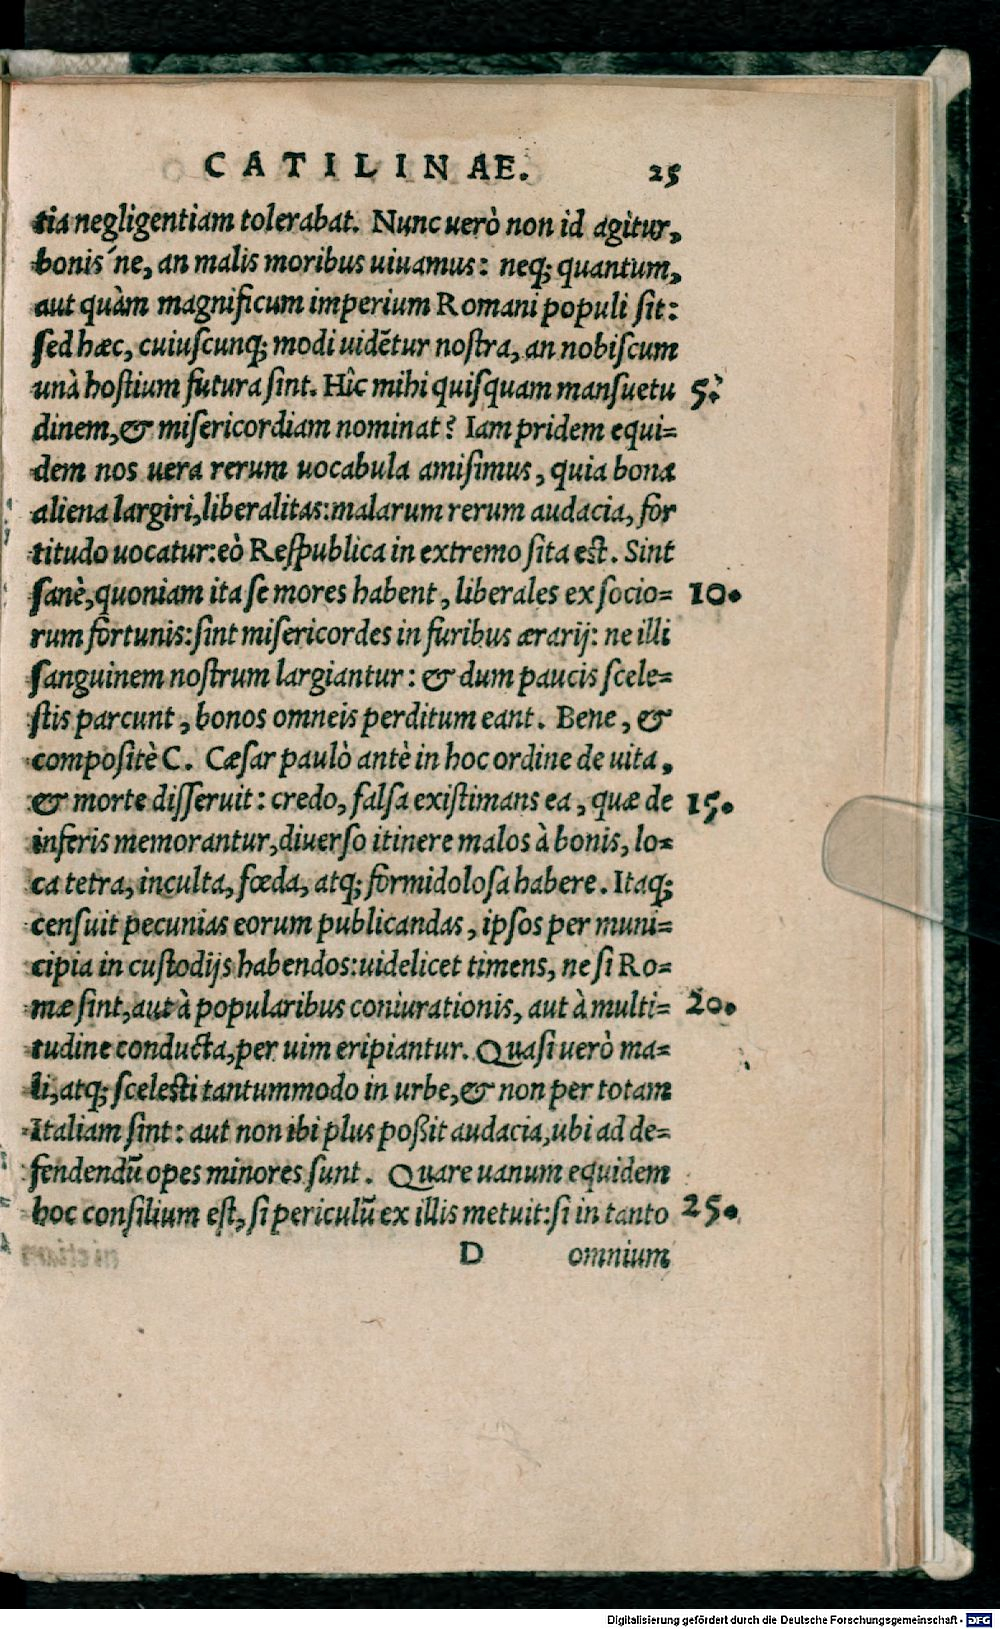 CATILINAE. 25
tia negligentiam tolerabat. Nunc uerò non id agitur,
bonis ́ne, an malis moribus uiuamus: neq; quantum,
aut quàm magnificum imperium Romani populi sit:
sed hæc, cuiuscunq; modi uidētur nostra, an nobiscum
unà hostium futura sint. Hîc mihi quisquam mansuetu 5.
dinem, & misericordiam nominat? Iam pridem equi=
dem nos uera rerum uocabula amisimus, quia bona
aliena largiri, liberalitas: malarum rerum audacia, for
titudo uocatur: eò Respublica in extremo sita est. Sint
sanè, quoniam ita se mores habent, liberales ex socio= 10.
rum fortunis: sint misericordes in furibus ærarij: ne illi
sanguinem nostrum largiantur: & dum paucis scele=
stis parcunt, bonos omneis perditum eant. Bene, &
compositè C. Cæsar paulò antè in hoc ordine de uita,
& morte disseruit: credo, falsa existimans ea, quæ de 15.
inferis memorantur, diuerso itinere malos à bonis, lo=
ca tetra, inculta, fœda, atq; formidolosa habere. Itaq;
censuit pecunias eorum publicandas, ipsos per muni=
cipia in custodijs habendos: uidelicet timens, ne si Ro=
mæ sint, aut à popularibus coniurationis, aut à multi= 20.
tudine conducta, per uim eripiantur. Quasi uerò ma=
li, atq; scelesti tantummodo in urbe, & non per totam
Italiam sint: aut non ibi plus poßit audacia, ubi ad de=
fendendū opes minores sunt. Quare uanum equidem
hoc consilium est, si periculū ex illis metuit: si in tanto 25.
D omnium
Digitalisierung gefördert durch die Deutsche Forschungsgemeinschaft - DFG